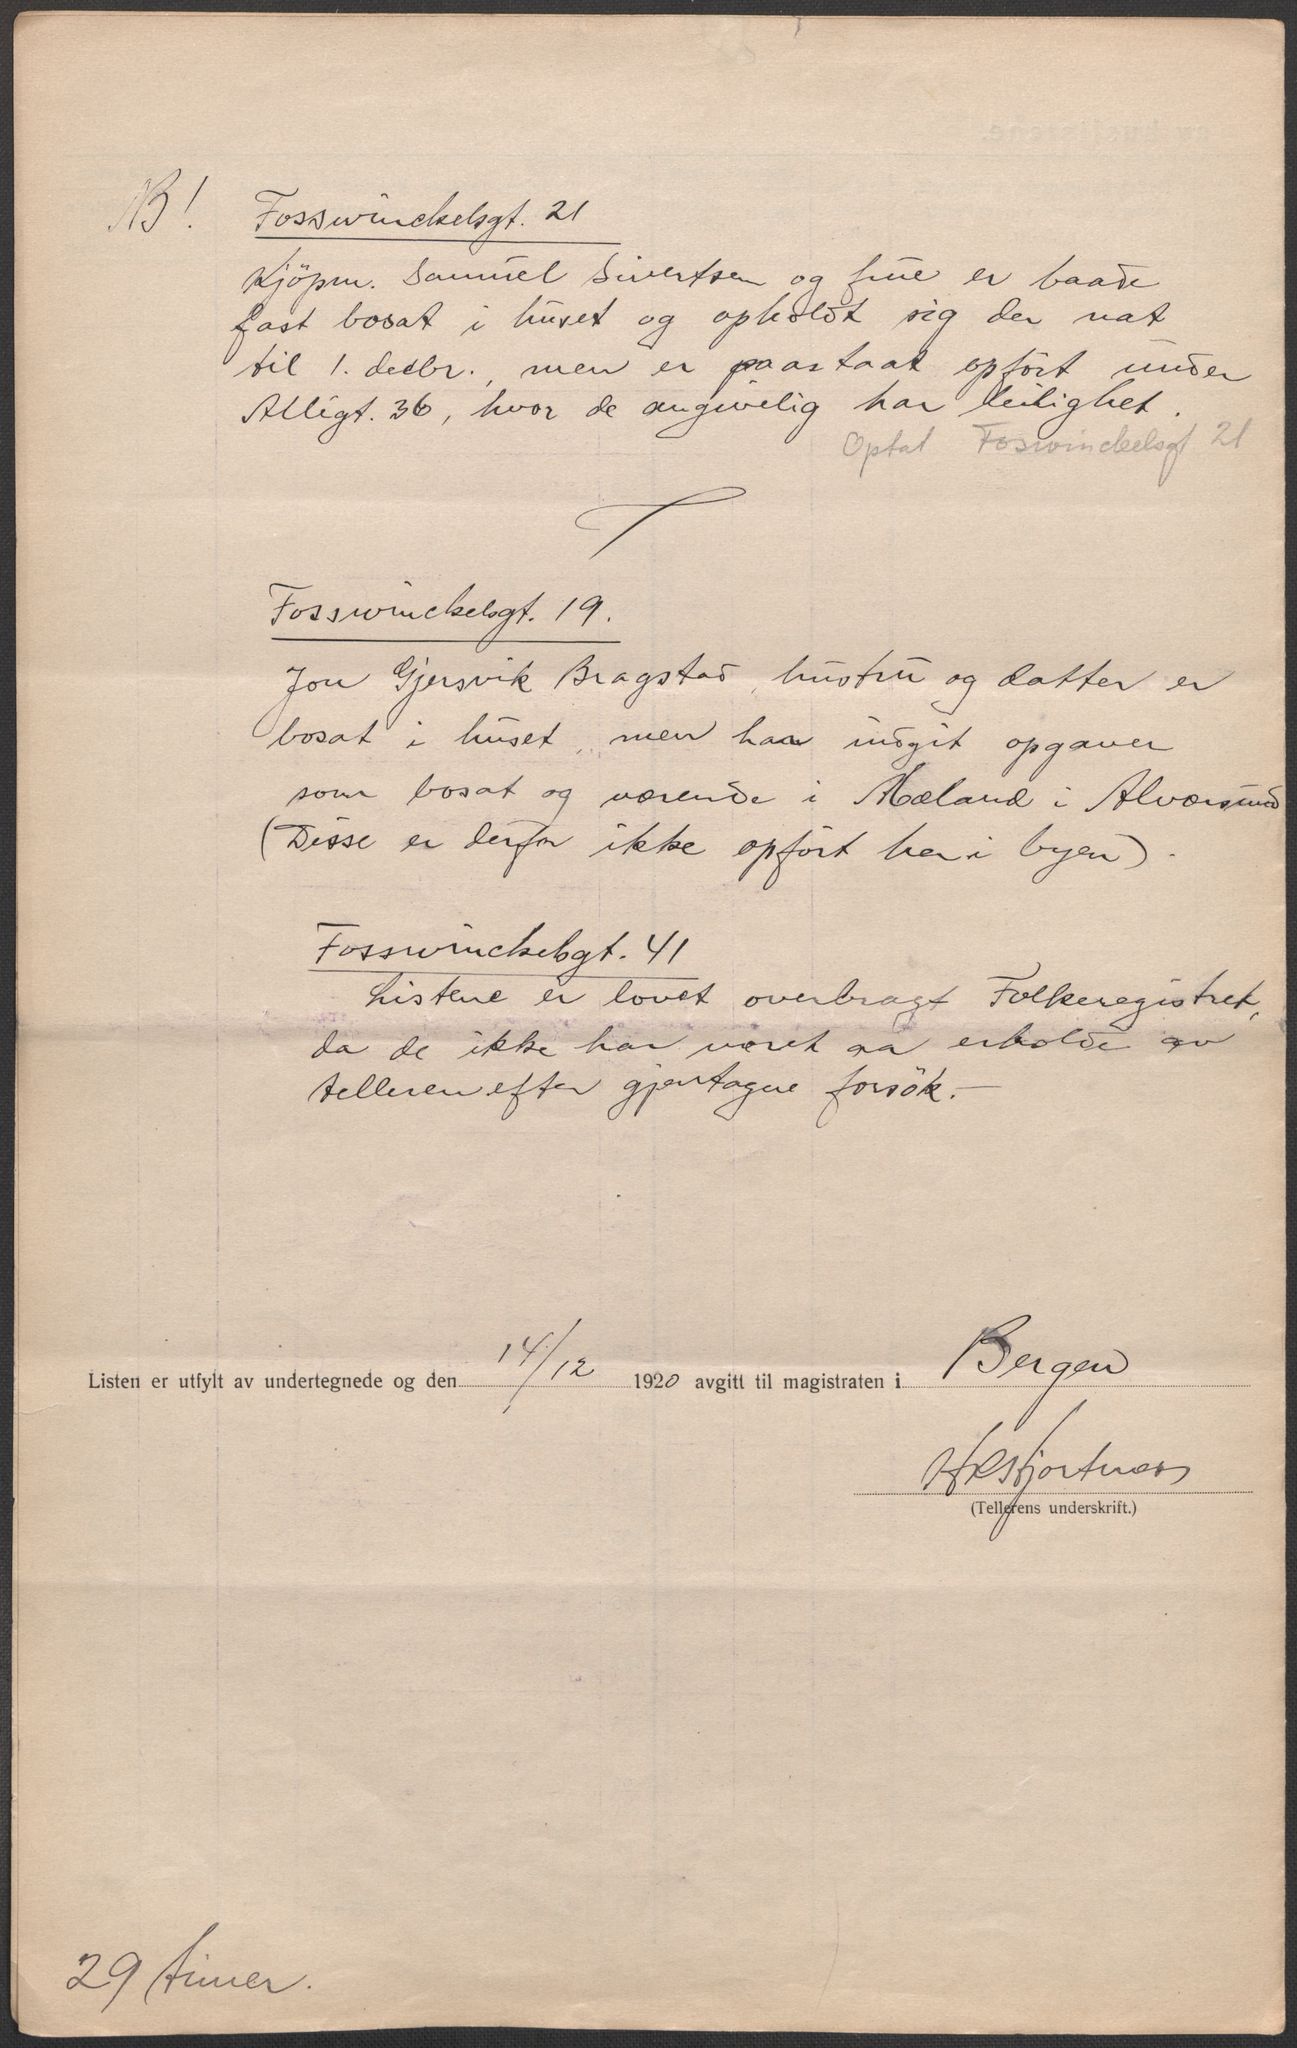 NB! Fosswinckelsgt. 21
Kjöpm. Samuel Sivertsen og frue er baade
fast bosat i huset og opholdt sig der nat
til 1. decbr., men er paastaat opført under
Alligt. 36, hvor de angivelig har leilighet.
Optat Foswinckelsgt 21
Fosswinckelsgt. 19.
Jon Gjersvik Bragstad, hustru og datter er
bosat i huset, men har indgit opgaver
som bosat og værende i Mæland i Alværsund
(Disse er derfor ikke opført her i byen).
Fosswinckelsgt. 41
Listene er lovet overbragt Folkeregistret,
da de ikke har været aa erholde av
telleren efter gjentagne forsök.-
Listen er utfylt av undertegnede og den 14/12 1920 avgitt til magistraten i Bergen
(Tellerens underskrift.)
29 timer.